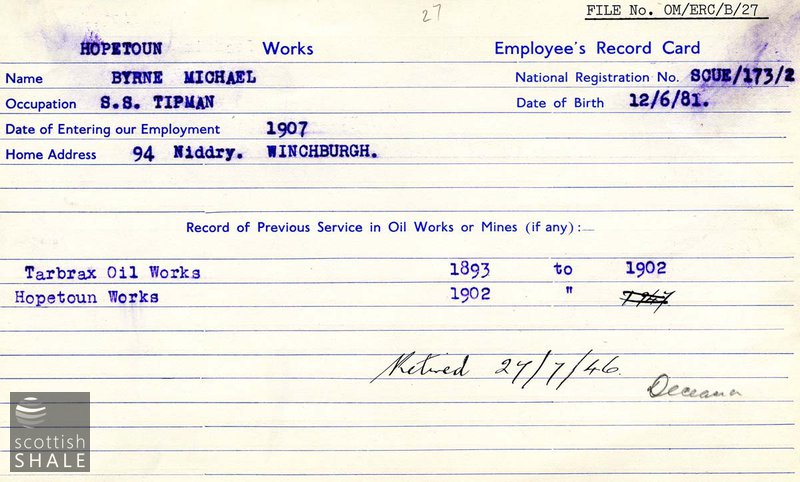 27
FILE No. OM/ERC/B/27
HOPETOUN Works Employee's Record Card
Name BYRNE MICHAEL National Registration No. SCUE/173/2
Occupation S.S. TIPMAN Date of Birth 12/6/81.
Date of Entering our Employment 1907
Home Address 94 Niddry. WINCHBURGH.
Record of Previous Service in Oil Works or Mines (if any):—
Tarbrax Oil Works 1893 to 1902
Hopetoun Works 1902 "
Retired 27/7/46.
scottish
SHALE